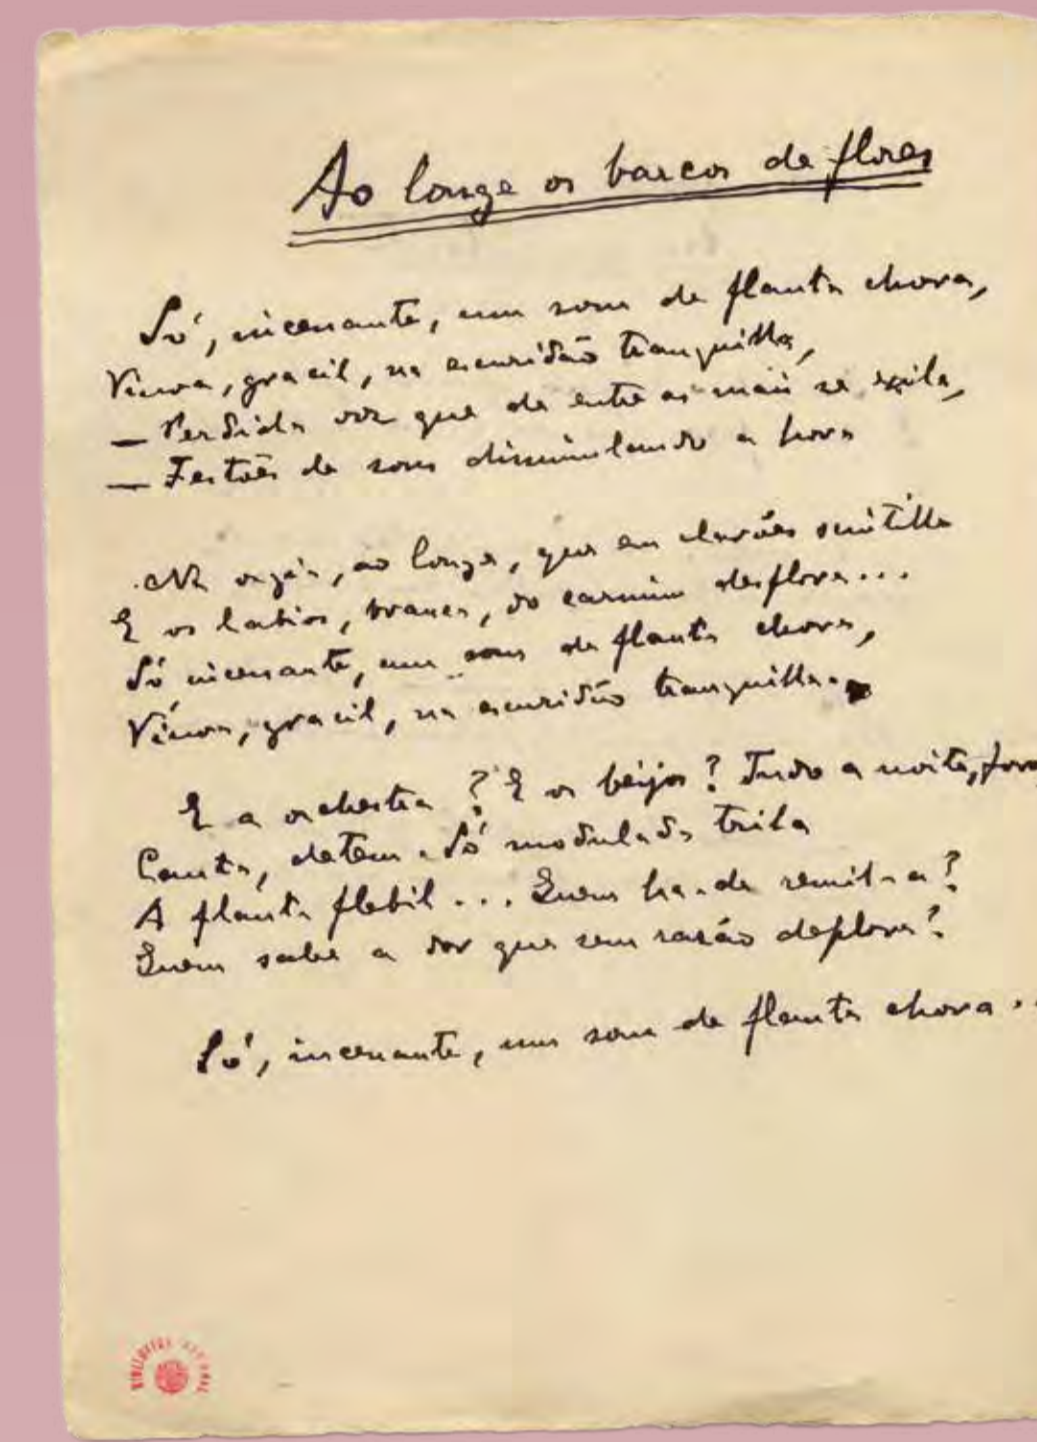 Ao longe os barcos de flores
Só, incessante, um som de flauta chora,
Viuva, gracil, na escuridão tranquilla,
— Perdida voz que de entre as mais se exila,
— Festões de som dissimulando a hora
Na orgia, ao longe, que em clarões scintilla
E os labios, branca, do carmim desflora...
Só, incessante, um som de flauta chora,
Viuva, gracil, na escuridão tranquilla.
E a orchestra? E os beijos? Tudo a noite, fora,
Cauta, detem. Só modulada trila
A flauta flebil... Quem ha-de remil-a?
Quem sabe a dor que sem razão deplora?
Só, incessante, um som de flauta chora..